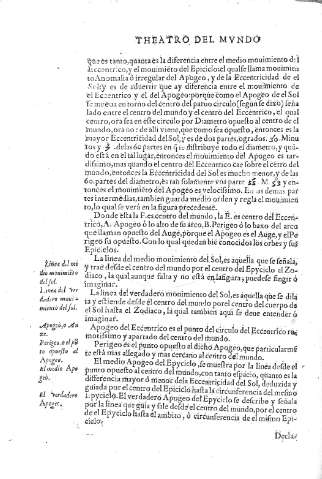 THEATRO DEL MVNDO
es tanto, quanta es la diferencia entre el medio mouimiento del
Eccentrico, y el mouimiento del Epiciclo el qual se llama mouimien
to Anomalia ò irregular del Apogeo, y de la Eccentricidad de el
Sol y es de aduertir que ay diferencia entre el mouimiento de
el Eccentrico y el del Apogeo porque como el Apogeo de el Sol
se mueua en torno del centro del paruo circulo (segun se dixo) seña
lado entre el centro del mundo y el centro del Eccentrico, el qual
centro, ora sea en este circulo por Diametro opuesto al centro de
mundo, ora no: de alli viene, que como sea opuesto, entonces es la
mayor Eccentricidad del Sol, y es de dos partes, ogrados. 30. Minu
tos y 3 de las 60 partes en que se distribuye todo el diametro, y quan
do està en el tal lugar, entonces el mouimiento del Apogeo es tar
dissimo, mas quando el centro del Eccentrico cae sobre el centro del
mundo, entonces la Eccentricidad del Sol es mucho menor, y de las
60. partes del diametro, es tan solamente vna parte 55 M. 53 y en-
tonces el mouimiento del Apogeo es velocissimo. En las demas par
tes intermedias, tambien guarda medio orden y regla el mouimien
to, lo qual se verà en la figura precedente.
Donde està la F. es centro del mundo, la E. es centro del Eccen-
trico, A. Apogeo ò lo alto de su arco, B. Perigeo ò lo baxo del arco
que llaman opuesto del Auge, porque el Apogeo es el Auge, y el Pe
rigeo su opuesto. Con lo qual quedan bië conocidos los orbes y sus
Epiciclos.
La linea del medio mouimiento del Sol, es aquella que se señala,
y trae desde el centro del mundo por el centro del Epyciclo al Zo-
diaco, la qual aunque falta y no està en la figura, puedese fingir ò
imaginar.
La linea del verdadero mouimiento del Sol, es aquella que se dila
ta y estiende desde el centro del mundo por el centro del cuerpo de
el Sol hasta el Zodiaco, la qual tambien aqui se deue entender ò
imaginar.
Apogeo del Eccentrico es el punto del circulo del Eccentrico re
motissimo y apartado del centro del mundo.
Perigeo es el punto opuesto al dicho Apogeo, que particularmẽ
te està mas allegado y mas cercano al centro del mundo.
El medio Apogeo del Epyciclo, se muestra por la linea desde el
punto opuesto al centro del mundo, con tanto espacio, quanto es la
diferencia mayor ò menor de la Eccentricidad del Sol, deduzida y
guiada por el centro del Epiciclo hasta la circunferencia del mesmo
Epyciclo. El verdadero Apogeo del Epyciclo se descriue y señala
por la linea que guia y sale desde el centro del mundo, por el centro
de el Epyciclo hasta el ambito, ò circunferencia de el mismo Epi-
ciclo.
Linea del me
dio mouimiẽto
del sol.
Linea del ver
dadero moui-
miento del sol.
Apogeo, o Au
ge.
Perigeo, o el pũ
to opuesto al
Apogeo.
El medio Apo
geo.
El verdadero
Apogeo.
Decla-